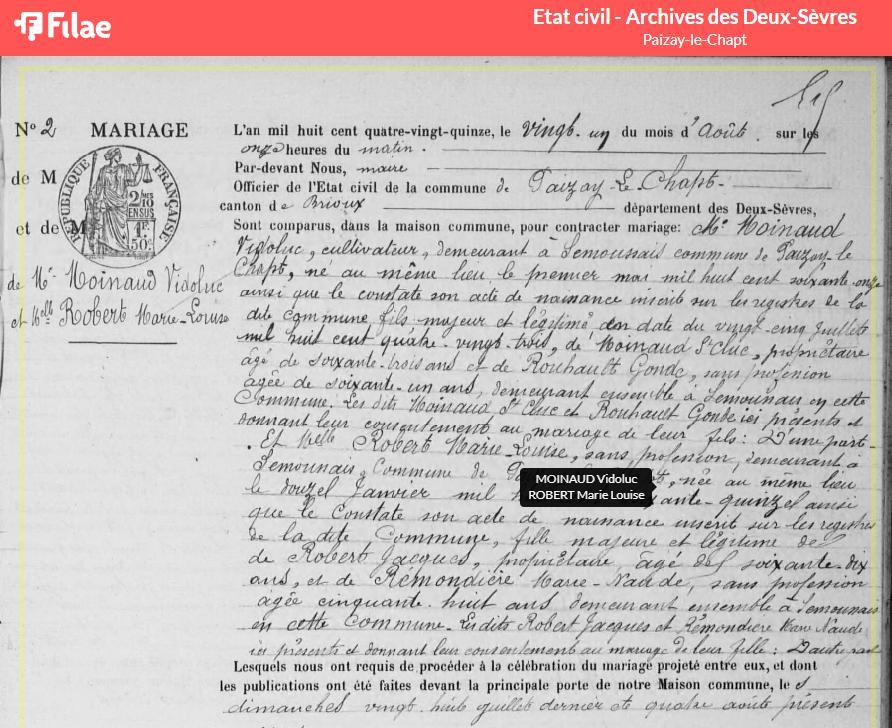 Filae
Etat civil - Archives des Deux-Sèvres
Paizay-le-Chapt
N° 2 MARIAGE
RÉPUBLIQUE FRANÇAISE
2/10mes
EN SUS
1F
50c
de M
et de M
de Mr Moinaud Vidoluc
et Melle Robert Marie-Louise
L'an mil huit cent quatre-vingt-quinze, le vingt-un du mois d'Août sur les
onze heures du matin.
Par-devant Nous, maire
Officier de l'Etat civil de la commune de Paizay-Le-Chapt-
canton de Brioux département des Deux-Sèvres,
Sont comparus, dans la maison commune, pour contracter mariage: Mr Moinaud
Vidoluc, cultivateur, demeurant à Lemounais commune de Paizay-le
Chapt, né au même lieu le premier mai mil huit cent soixante-onze
ainsi que le constate son acte de naissance inscrit sur les registres de la
dite commune fils majeur et légitime en date du vingt-cinq Juillet
mil huit cent quatre-vingt-trois, de Moinaud St Cluc, propriétaire
âgé de soixante-trois ans et de Rouhault Gonde, sans profession
âgée de soixante-un ans, demeurant ensemble à Lemounais en cette
Commune. Les dits Moinaud St Cluc et Rouhault Gonde ici présents et
donnant leur consentement au mariage de leur fils: D'une part-
. Et Melle Robert Marie-Louise, sans profession, demeurant à
Lemounais, Commune de née au même lieu
le douze Janvier mil ante-quinze ainsi
que le constate son acte de naissance inscrit sur les registres
de la dite Commune, fille majeure et légitime de
de Robert Jacques, propriétaire, âgé de soixante-dix
ans, et de Rémondière Marie-Naude, sans profession
âgée cinquante-huit ans demeurant ensemble à Lemounais
en cette Commune. Les dits Robert Jacques et Rémondiere Marie Naude
ici présents et donnant leur consentement au mariage de leur fille: D'autre part
Lesquels nous ont requis de procéder à la célébration du mariage projeté entre eux, et dont
les publications ont été faites devant la principale porte de notre Maison commune, les
dimanches vingt-huit juillet dernier et quatre août présent
MOINAUD Vidoluc
ROBERT Marie Louise